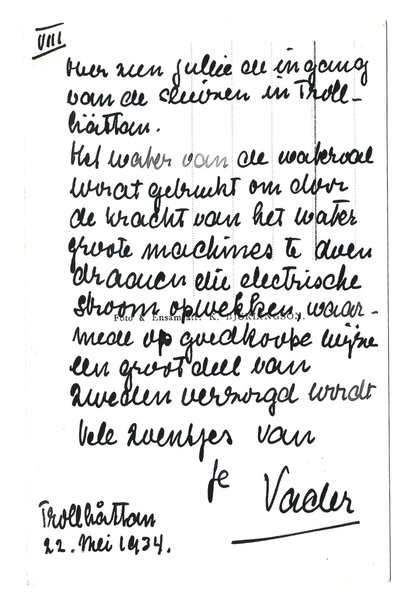 VIII
Hier zien jullie de ingang
van de sluizen in Troll-
hättan.
Het water van de waterval
wordt gebruikt om door
de kracht van het water
groote machines te doen
draaien die electrische
stroom opwekken, waar-
Foto & Ensamrätt: K. BJÖRLINGSON.
mede op goedkoope wijze
een groot deel van
Zweden verzorgd wordt
Vele zoentjes van
Je
Vader
Trollhättan
22. Mei 1934.